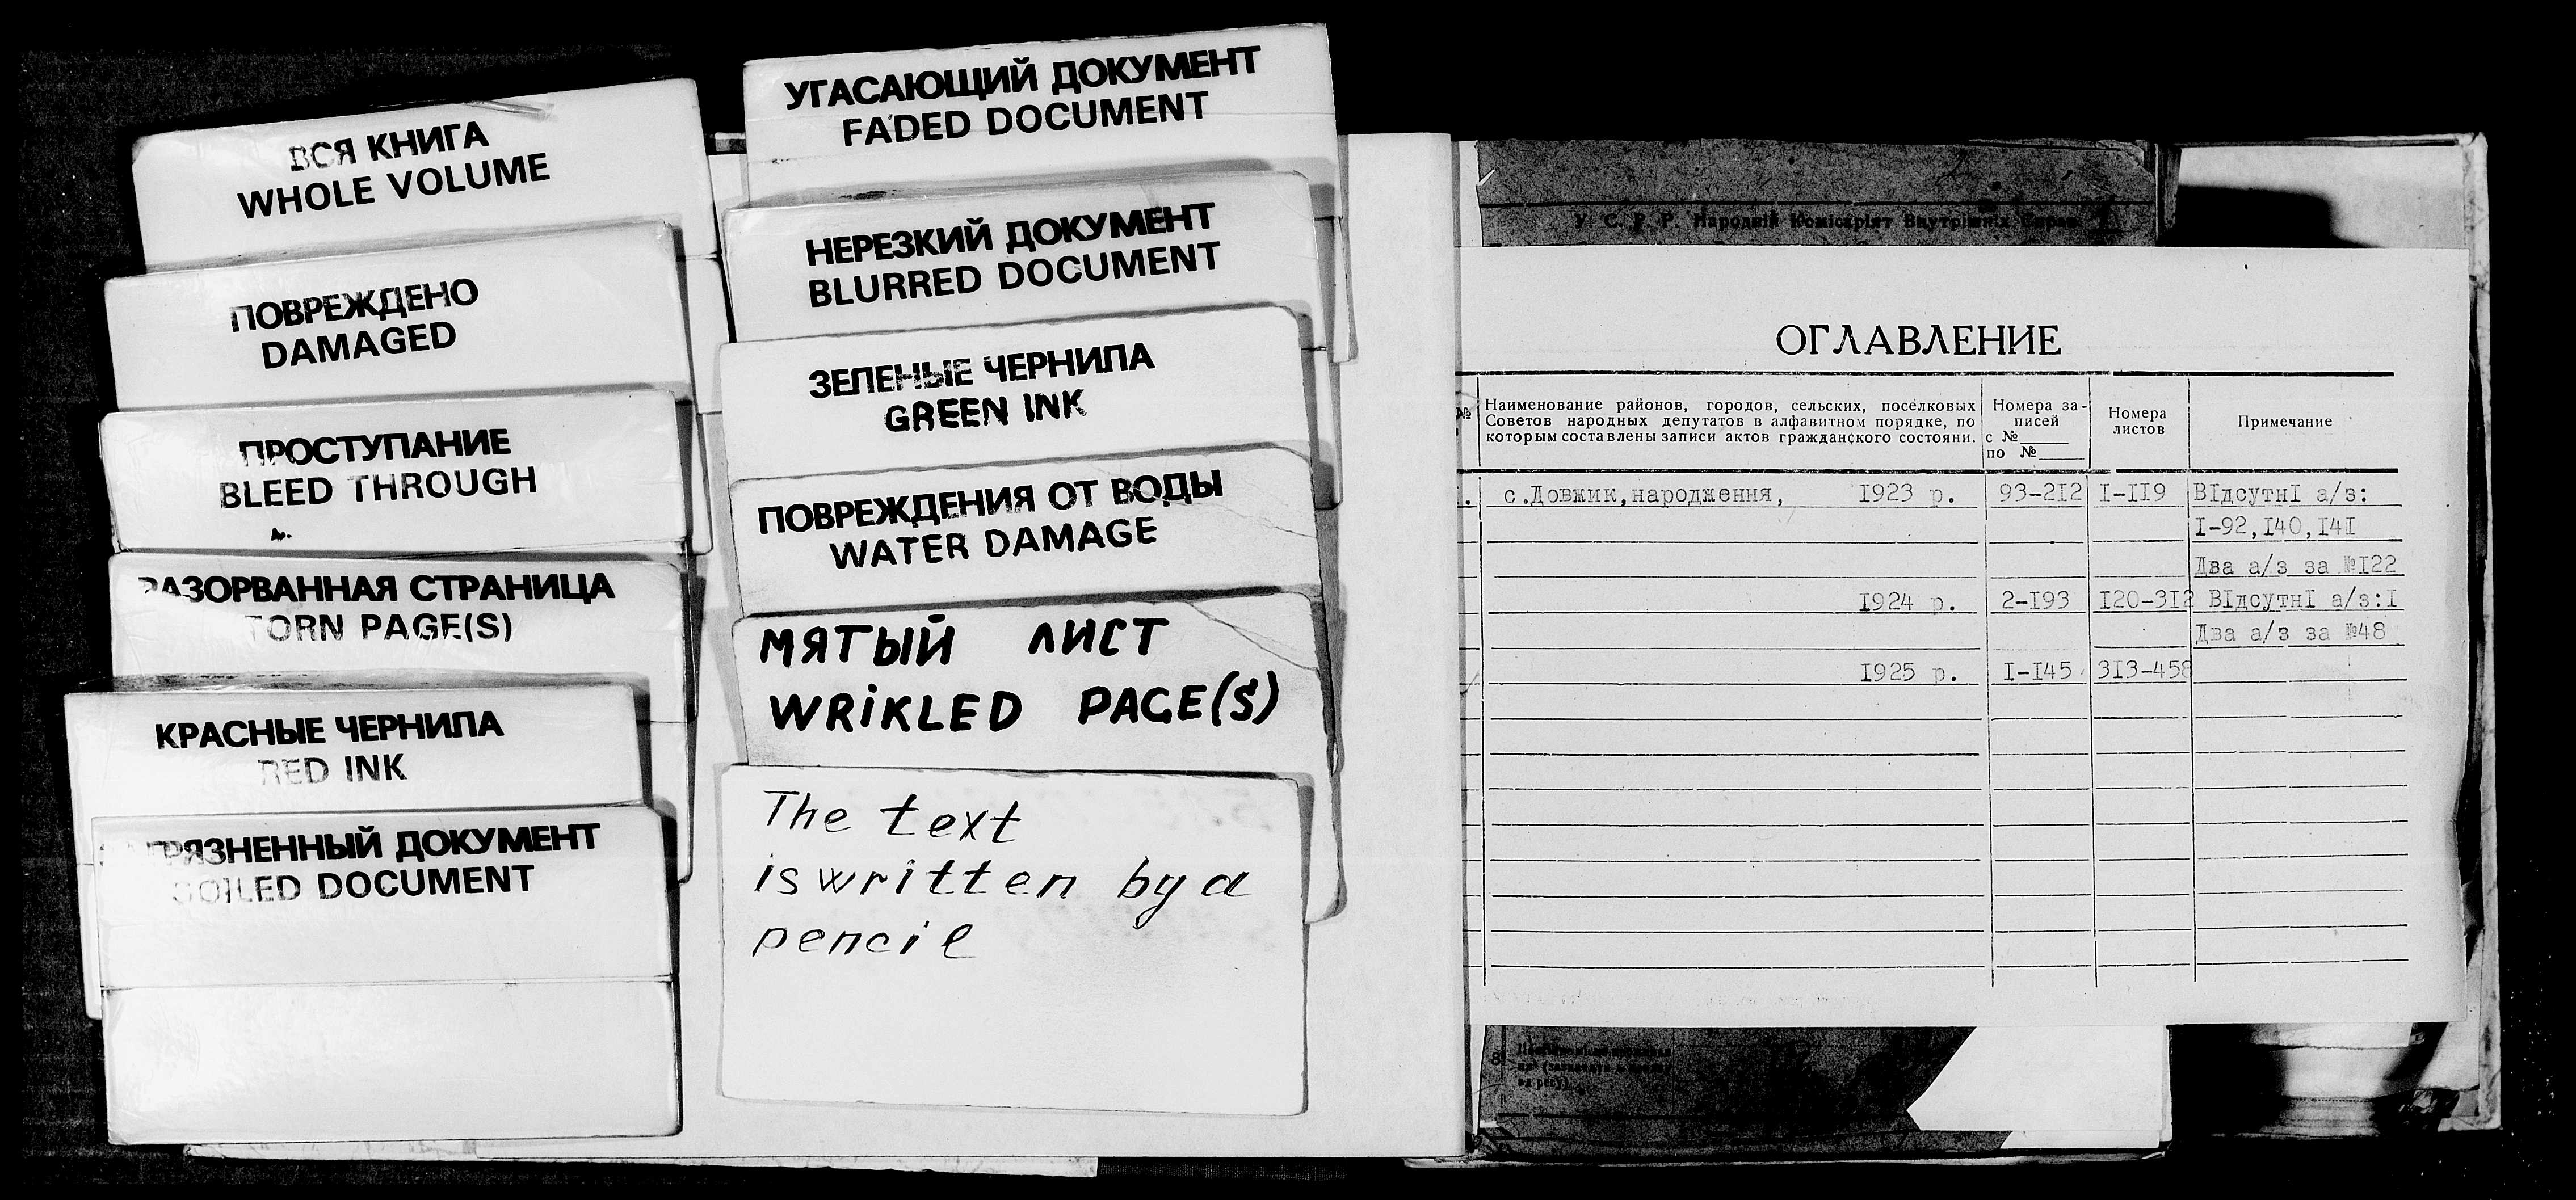 ВСЯ КНИГА
WHOLE VOLUME
ПОВРЕЖДЕНО
DAMAGED
ПРОСТУПАНИЕ
BLEED THROUGH
РАЗОРВАННАЯ СТРАНИЦА
TORN PAGE(S)
КРАСНЫЕ ЧЕРНИЛА
RED INK
ЗАГРЯЗНЕННЫЙ ДОКУМЕНТ
SOILED DOCUMENT
УГАСАЮЩИЙ ДОКУМЕНТ
FADED DOCUMENT
НЕРЕЗКИЙ ДОКУМЕНТ
BLURRED DOCUMENT
ЗЕЛЕНЫЕ ЧЕРНИЛА
GREEN INK
ПОВРЕЖДЕНИЯ ОТ ВОДЫ
WATER DAMAGE
МЯТЫЙ ЛИСТ
WRiKLED PAGE(S)
The text
is written by a
pencil
У. С. Р. Р. Народній Комісаріят Внутрішніх Справ
ОГЛАВЛЕНИЕ
№ Наименование районов, городов, сельских, поселковых Советов народных депутатов в алфавитном порядке, по которым составлены записи актов гражданского состояни.
Номера записей с №____ по №____
Номера листов
Примечание
с.Довжик,народження, 1923 р. 93-212 I-II9 ВІдсутнІ а/з:
I-92,I40,I4I
Два а/з за №I22
1924 р. 2-I93 I20-3I2 ВІдсутнІ а/з:I
Два а/з за №48
1925 р. I-I45 3I3-458
8